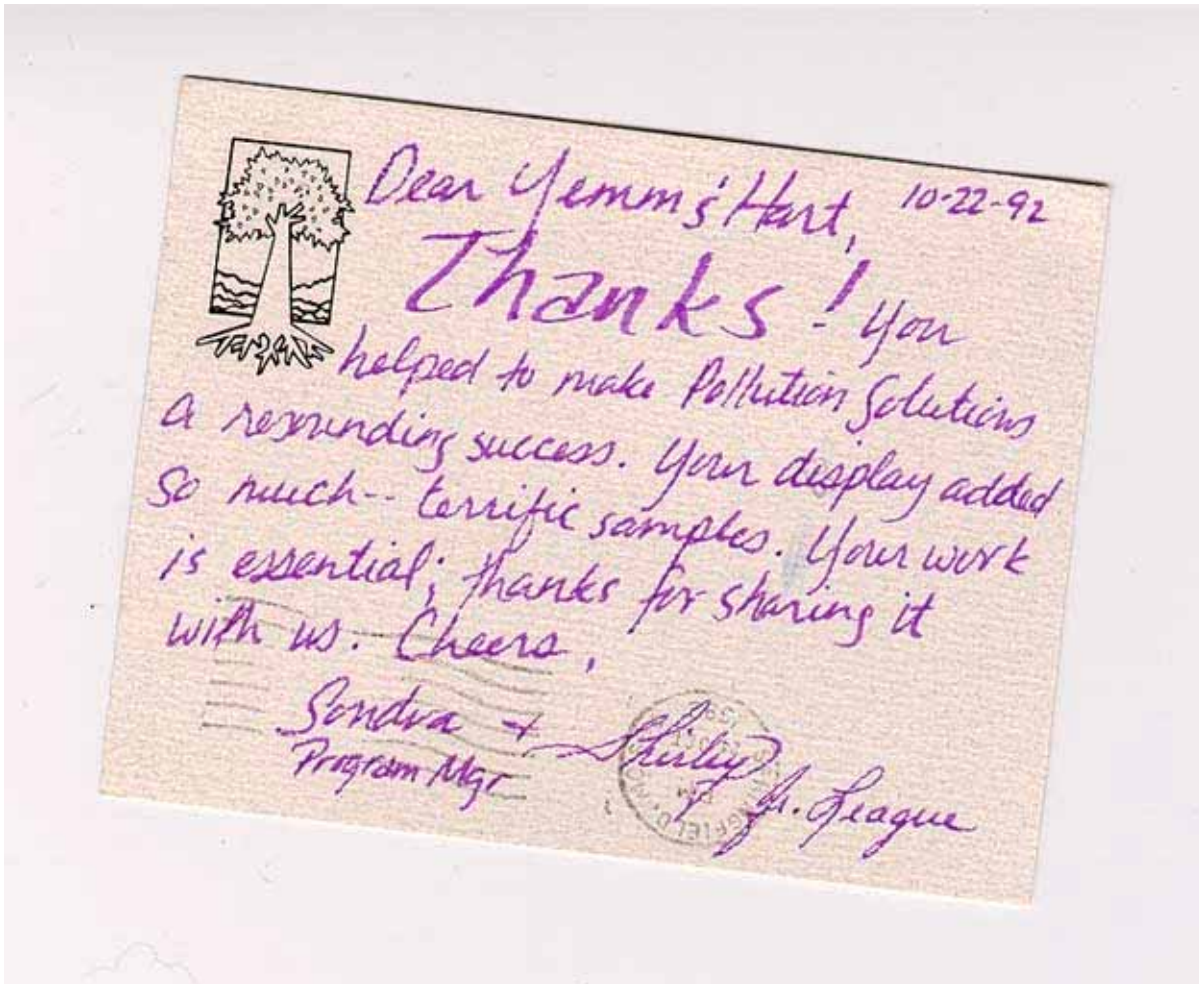 Dear Yemm & Hart, 10-22-92
Thanks! You
helped to make Pollution Solutions
a resounding success. Your display added
so much-- terrific samples. Your work
is essential; thanks for sharing it
with us. Cheers,
Sondra + Shirley
Program Mgr Jr. League
PM